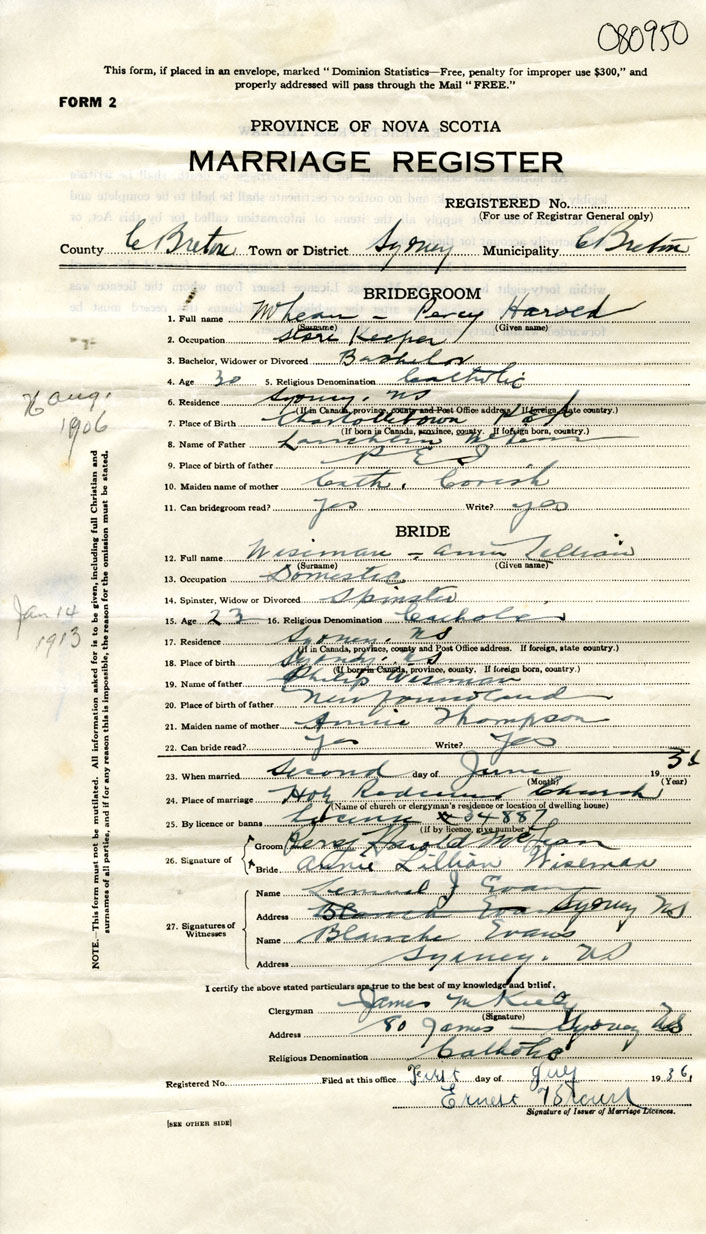 080950
This form, if placed in an envelope, marked "Dominion Statistics—Free, penalty for improper use $300," and
properly addressed will pass through the Mail "FREE."
FORM 2
PROVINCE OF NOVA SCOTIA
MARRIAGE REGISTER
REGISTERED No.
(For use of Registrar General only)
County C Breton Town or District Sydney Municipality C Breton
BRIDEGROOM
1. Full name Whean - Percy Harold
(Surname) (Given name)
2. Occupation Store Keeper
3. Bachelor, Widower or Divorced Bachelor
4. Age 30 5. Religious Denomination Catholic
6. Residence Sydney, NS
(If in Canada, province, county and Post Office address. If foreign, state country.)
7. Place of Birth Charlottetown P.E.I
(If born in Canada, province, county. If foreign born, country.)
8. Name of Father
9. Place of birth of father P E I
10. Maiden name of mother Cath. Corish
11. Can bridegroom read? yes Write? yes
26 Aug.
1906
BRIDE
12. Full name Wiseman - Annie Lillian
(Surname) (Given name)
13. Occupation Domestic
14. Spinster, Widow or Divorced Spinster
15. Age 23 16. Religious Denomination Catholic
17. Residence Sydney, NS
(If in Canada, province, county and Post Office address. If foreign, state country.)
18. Place of birth Sydney, NS
(If born in Canada, province, county. If foreign born, country.)
19. Name of father Philip Wiseman
20. Place of birth of father Newfoundland
21. Maiden name of mother Annie Thompson
22. Can bride read? yes Write? Yes
Jan 14
1913
23. When married Second day of June 19 36
(Month) (Year)
24. Place of marriage Holy Redeemer Church
(Name of church or clergyman's residence or location of dwelling house)
25. By licence or banns License 34887
(If by licence, give number)
26. Signature of
Groom Percy Harold Whean
Bride Annie Lillian Wiseman
27. Signatures of
Witnesses
Name Samuel J Evans
Address Blanche Evans Sydney NS
Name Blanche Evans
Address Sydney, NS
I certify the above stated particulars are true to the best of my knowledge and belief.
Clergyman James M Kiely
(Signature)
Address 80 James - Sydney NS
Religious Denomination Catholic
Registered No. Filed at this office First day of July 19 36
Ernest
Signature of Issuer of Marriage Licences.
[SEE OTHER SIDE]
NOTE.—This form must not be mutilated. All information asked for is to be given, including full Christian and
surnames of all parties, and if for any reason this is impossible, the reason for the omission must be stated.